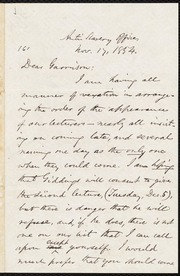 Anti Slavery Office,
Nov. 17, 1854.
Dear Garrison:
I am having all
manner of vexation in arranging
the order of the appearance
of our lecturers — nearly all insisting
on coming late, and several
naming one day as the only one
when they could come. I am hoping
that Giddings will consent to give
the second lecture, (Tuesday, Dec. 5),
but there is danger that he will
refuse, and if he does, there is not
one on our list that I can call
upon except yourself. I would
much prefer that you should come